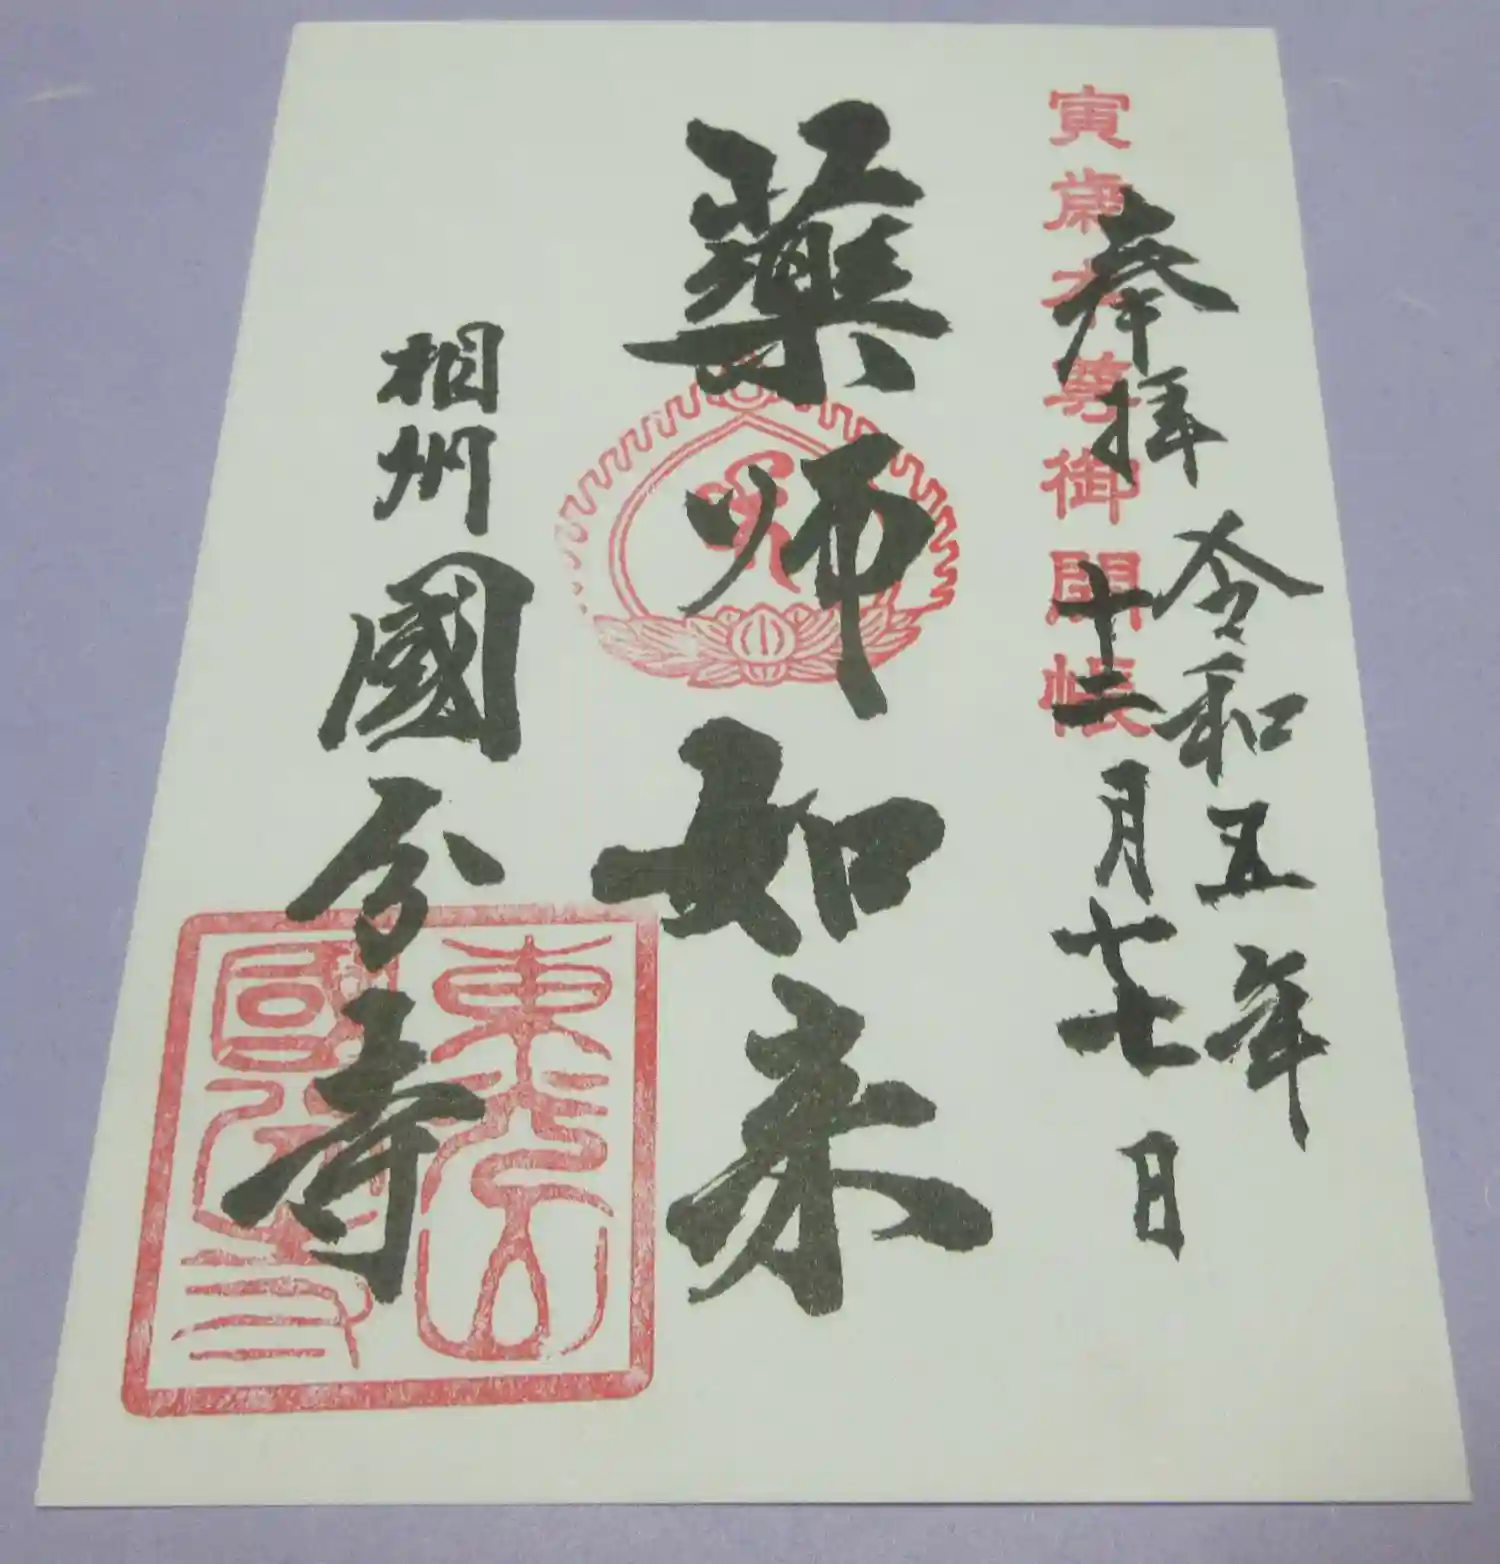 奉拝
令和五年
十二月十七日
寅歳本尊御開帳
薬師如来
相州 國分寺
東光山
國分寺